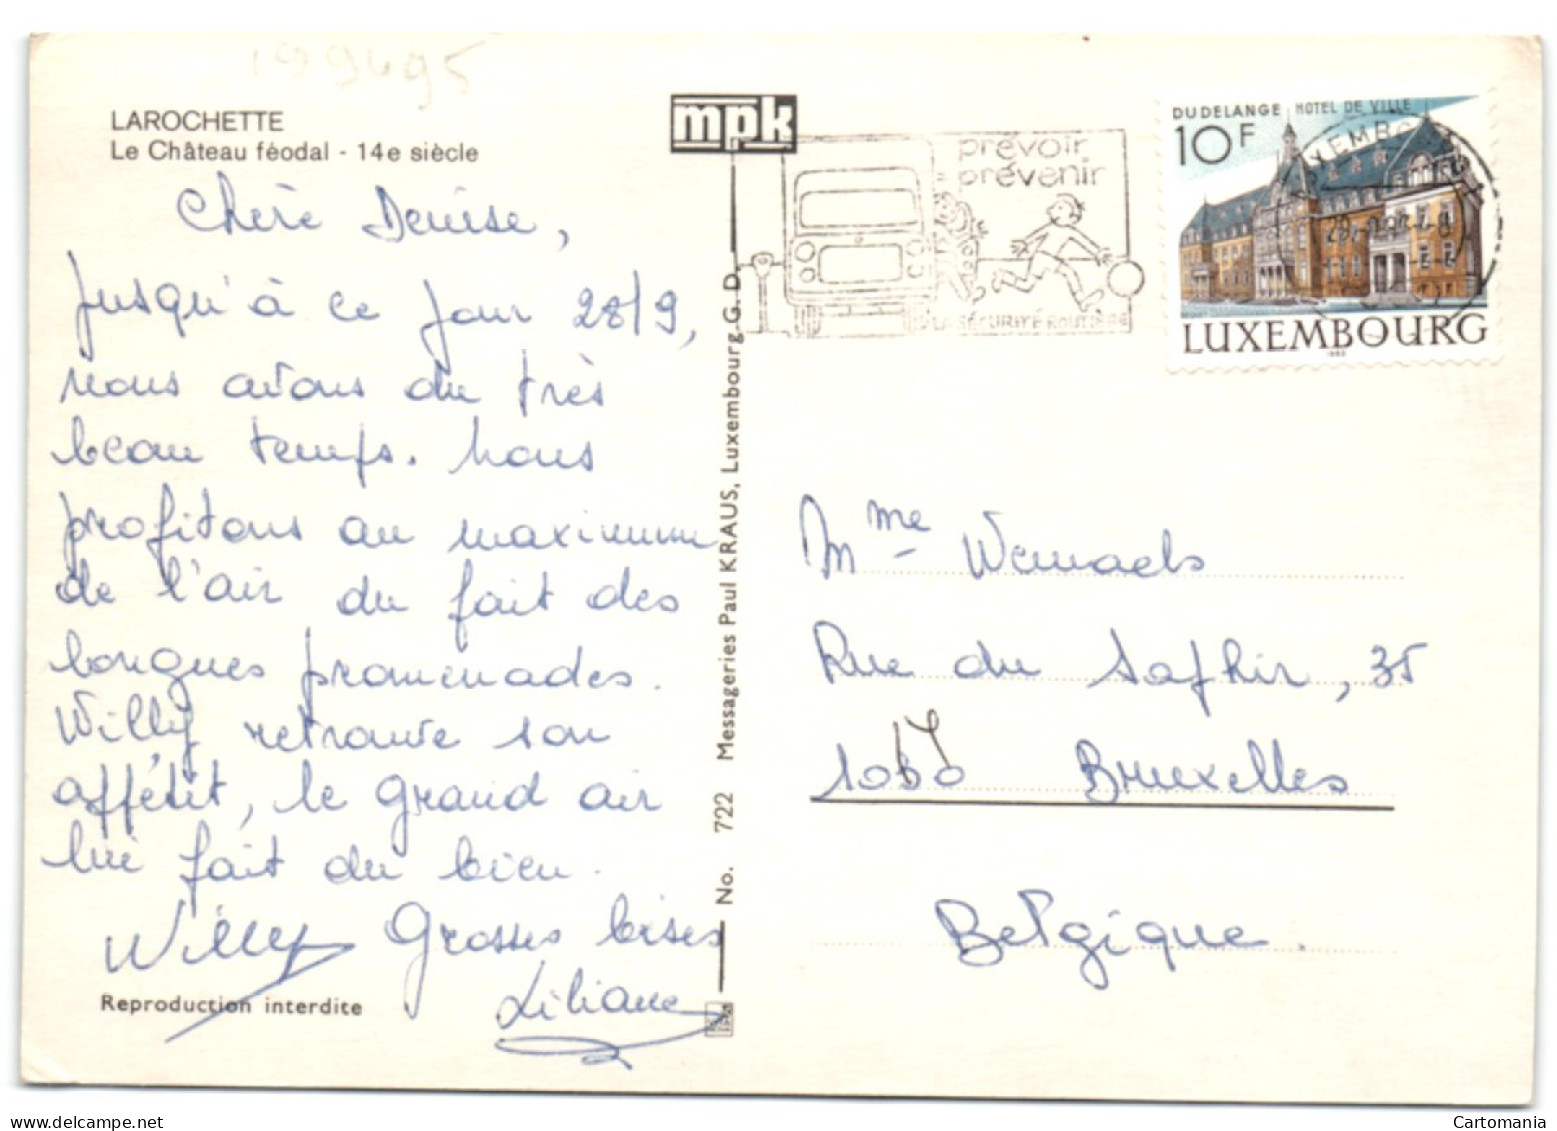 199495
LAROCHETTE
Le Château féodal - 14e siècle
Chère Denise,
Jusqu'à ce jour 28/9,
nous avons du très
beau temps. Nous
profitons au maximum
de l'air du fait des
longues promenades.
Willy retrouve son
appétit, le grand air
lui fait du bien.
Willy Grosses bises
Liliane
Reproduction interdite
mpk
No. 722 Messageries Paul KRAUS, Luxembourg-G. D.
prévoir
prévenir
LA SÉCURITÉ ROUTIÈRE
DUDELANGE HOTEL DE VILLE
10F
LUXEMBOURG
Mme Wemaels
Rue du Saphir, 35
Bruxelles
Belgique.
delcampe.net
Cartomania